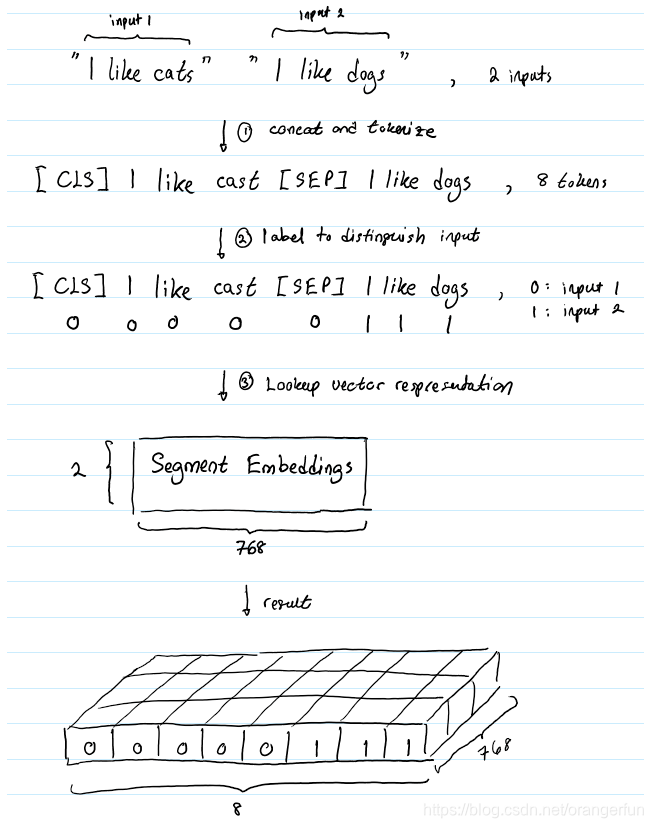 input 1 input 2
"I like cats" "I like dogs" , 2 inputs
① concat and tokenize
[CLS] I like cast [SEP] I like dogs , 8 tokens
② label to distinguish input
[CLS] I like cast [SEP] I like dogs , 0: input 1
0 0 0 0 0 1 1 1 1: input 2
③ Lookup vector respresentation
2 Segment Embeddings
768
result
0 0 0 0 0 1 1 1
768
8
https://blog.csdn.net/orangerfun